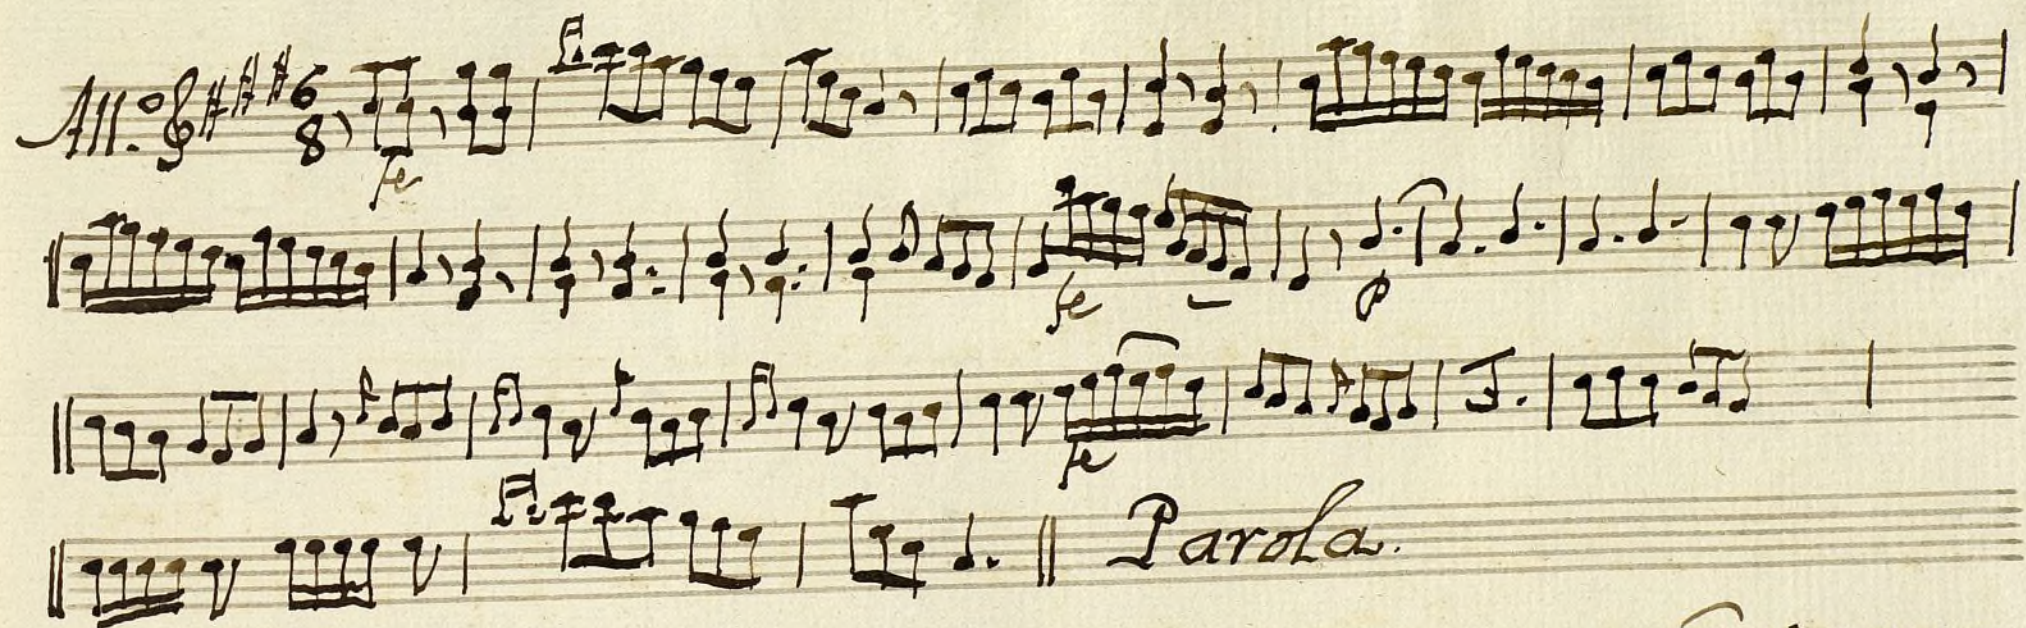 All.º 6
8
fe
fe p
fe
Parola.